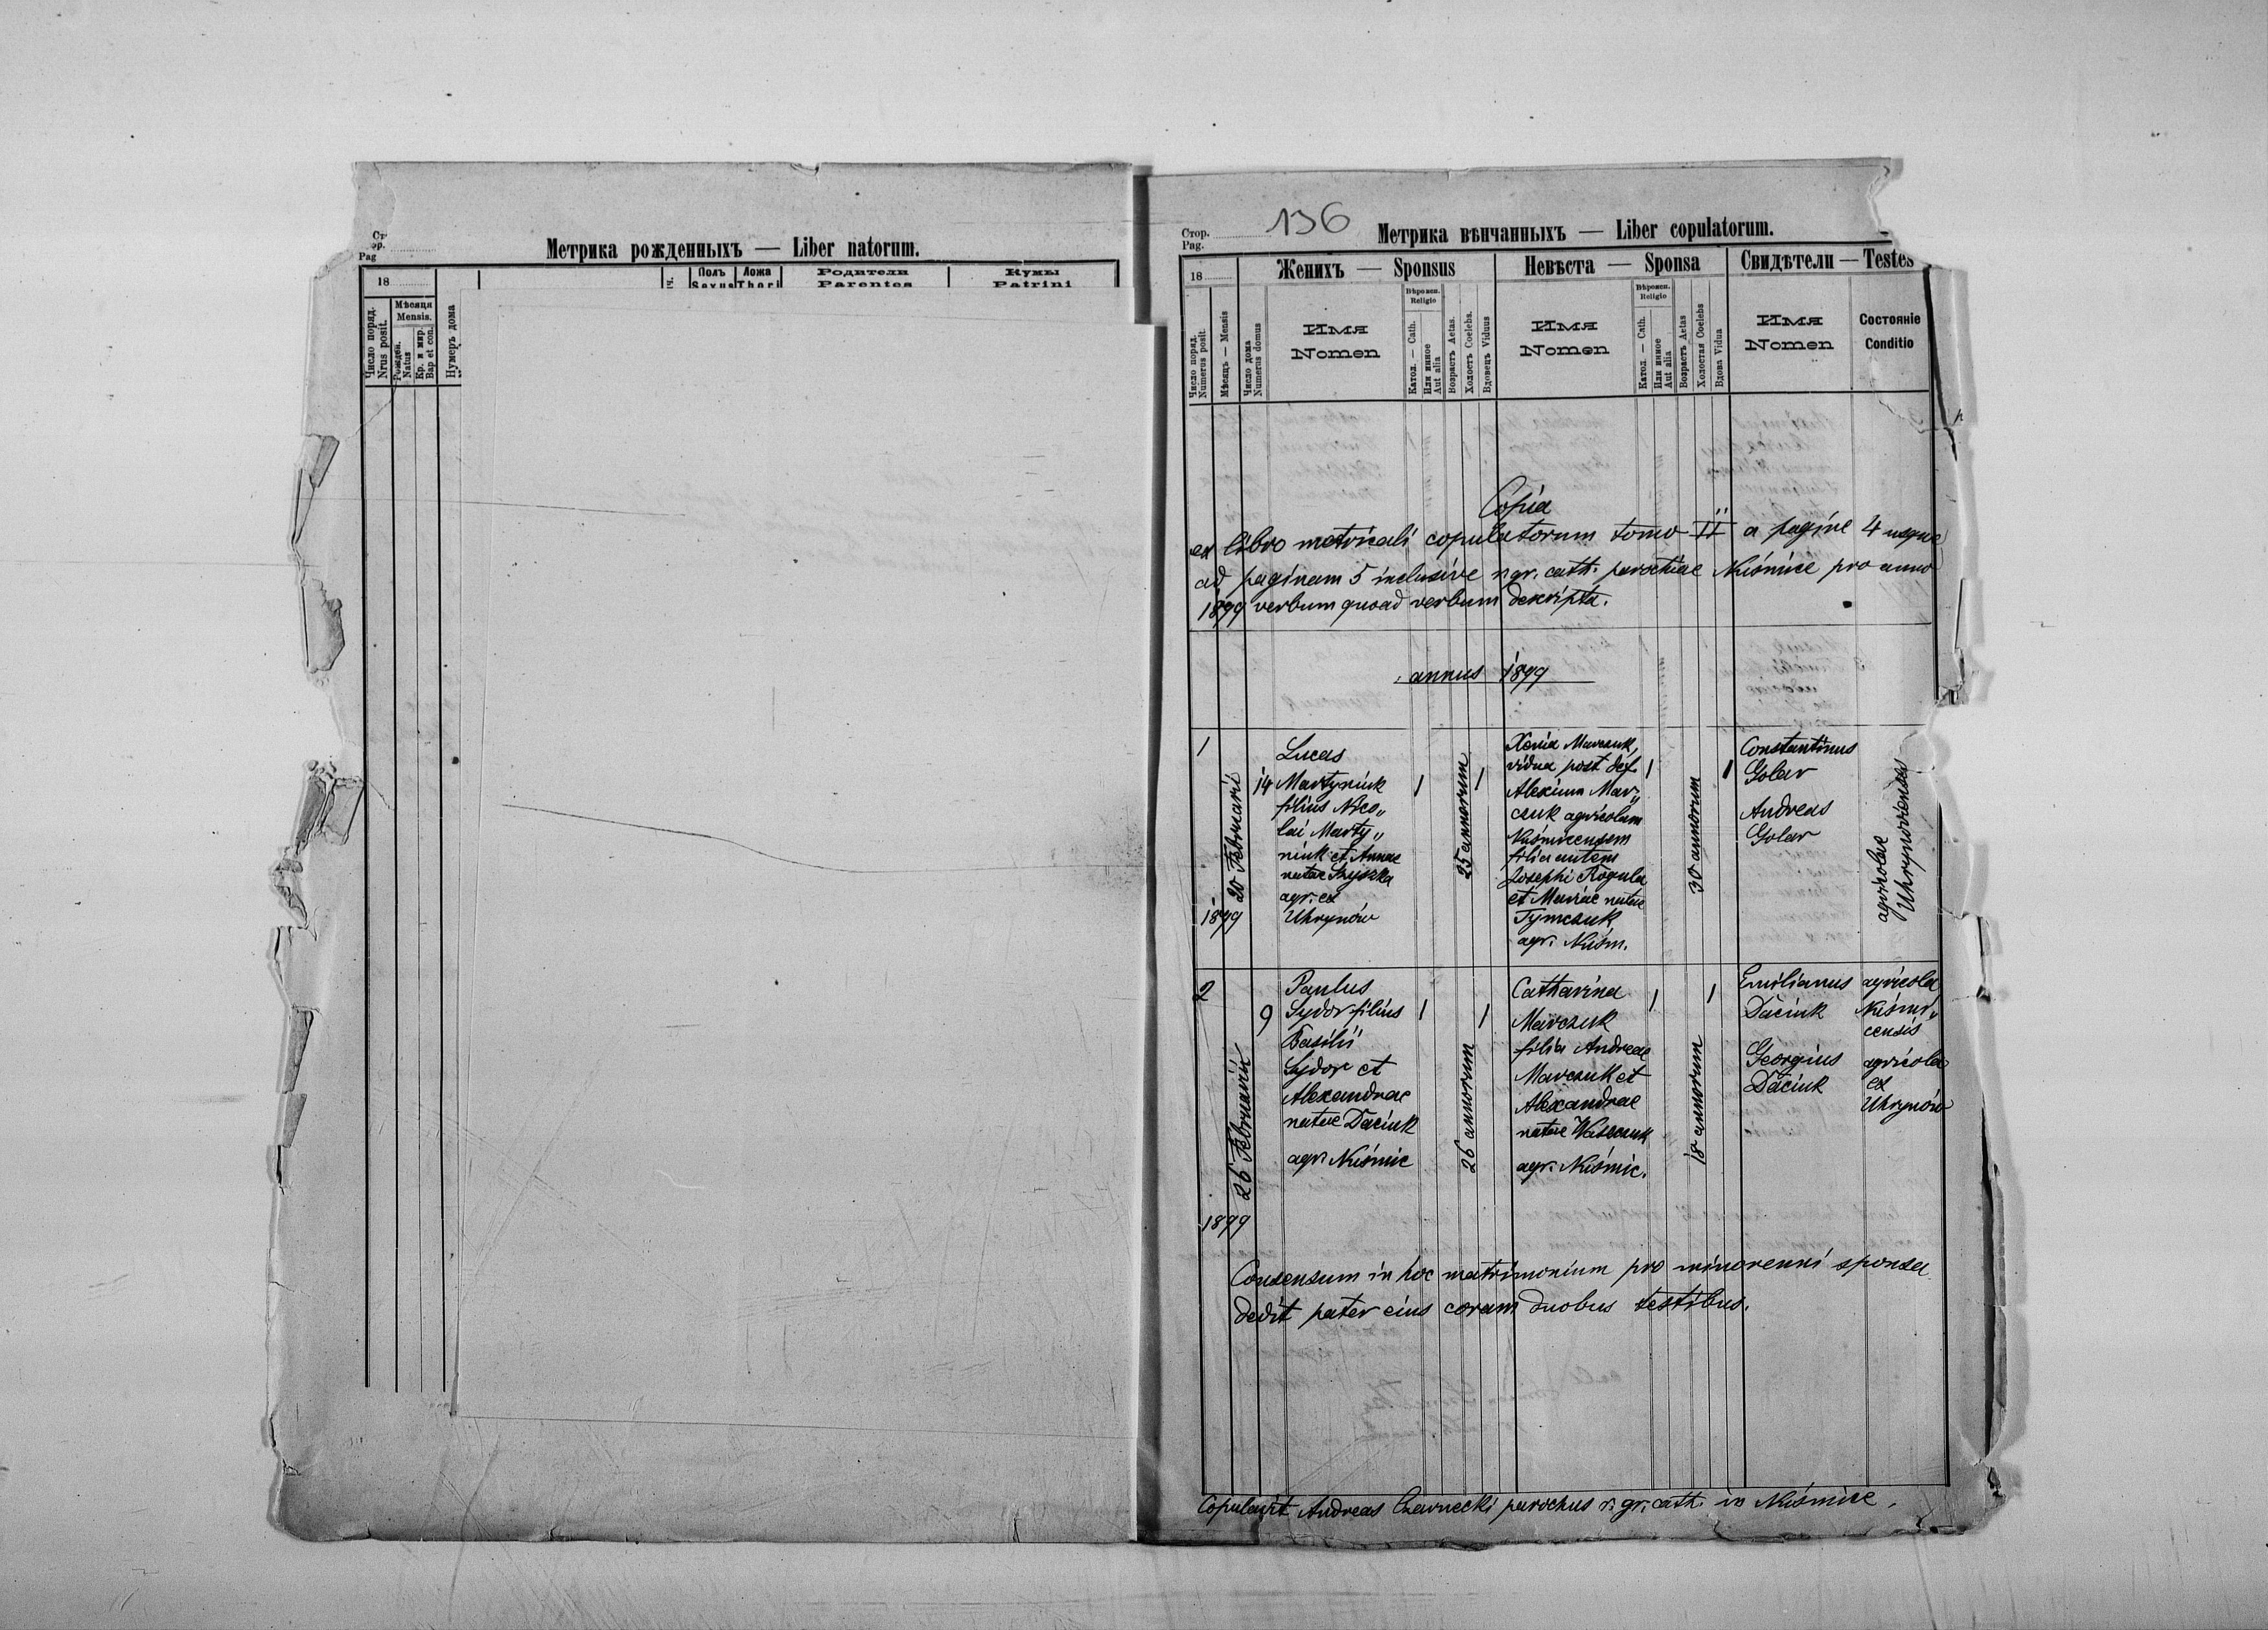 Стр.
Pag
Метрика рожденныхъ — Liber natorum.
18
Полъ
Sexus
Ложа
Thori
Родители
Parentes
Кумы
Patrini
Число поряд.
Nrus posit.
Мѣсяця
Mensis.
Рожден.
Natus
Кр. и мир.
Bap et con.
Нумеръ дома
Стор.
Pag.
136
Метрика вѣнчанныхъ — Liber copulatorum.
18
Женихъ — Sponsus
Невѣста — Sponsa
Свидѣтели — Testes
Число поряд.
Numerus posit.
Мѣсяцъ — Mensis
Число дома
Numerus domus
Имя
Nomen
Вѣроисп.
Religio
Катол. — Cath.
Или инное
Aut alia
Возрастъ Aetas.
Холостъ Coelebs.
Вдовецъ Viduus
Имя
Nomen
Вѣроисп.
Religio
Катол. — Cath.
Или инное
Aut alia
Возрастъ Aetas
Холостая Coelebs
Вдова Vidua
Имя
Nomen
Состояніе
Conditio
Copia
ex libro metricali copulatorum tomo II a pagine 4 usque
ad paginam 5 inclusive r. gr. cath. parochiae Kuśmice pro anno
1899 verbum quoad verbum descripta.
annus 1899
1
20 Februarii
1899
14
Lucas
Martyniuk
filius Nico„
lai Marty„
niuk et Annae
natae Szyszka
agr. ex
Uhrynów
1
25 annorum
1
Xenia Marczuk,
vidua post def.
Alexium Mar„
czuk agricolam
Kuśmicensem
filia autem
Josephi Rogula
et Mariae natae
Tymczuk
agr. Kuśm.
1
30 annorum
1
Constantinus
Golar
Andreas
Golar
agricolae
Uhrynovienses
2
26 Februarii
1899
9
Paulus
Sydor filius
Basilii
Sydor et
Alexandrae
natae Daciuk
agr. Kuśmic
1
26 annorum
1
Catharina
Marczuk
filia Andreae
Marczuk et
Alexandrae
natae Wasczuk
agr. Kuśmic.
1
18 annorum
1
Emilianus
Daciuk
Georgius
Daciuk
agricola
Kuśmi„
censis
agricola
ex
Uhrynów
Consensum in hoc matrimonium pro minorenni sponsa
dedit pater eius coram duobus testibus.
Copulavit Andreas Czarnecki parochus r. gr. cath. in Kuśmice.